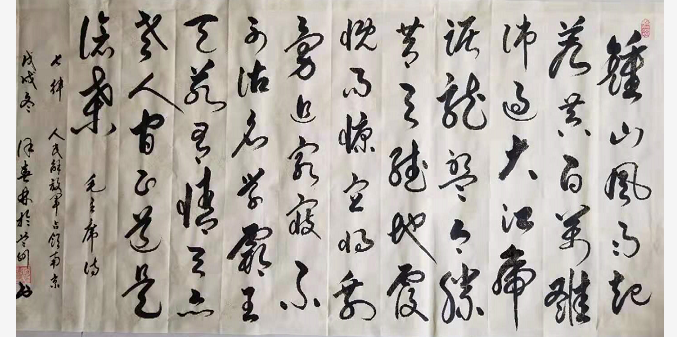 鍾山風雨起
蒼黄百萬雄
师过大江虎
踞龍盤今勝
昔天翻地覆
慨而慷宜将剩
勇追穷寇不
可沽名学霸王
天若有情天亦
老人间正道是
滄桑
毛主席诗
七律 人民解放军占领南京
戊戌冬 春林於兰州 书